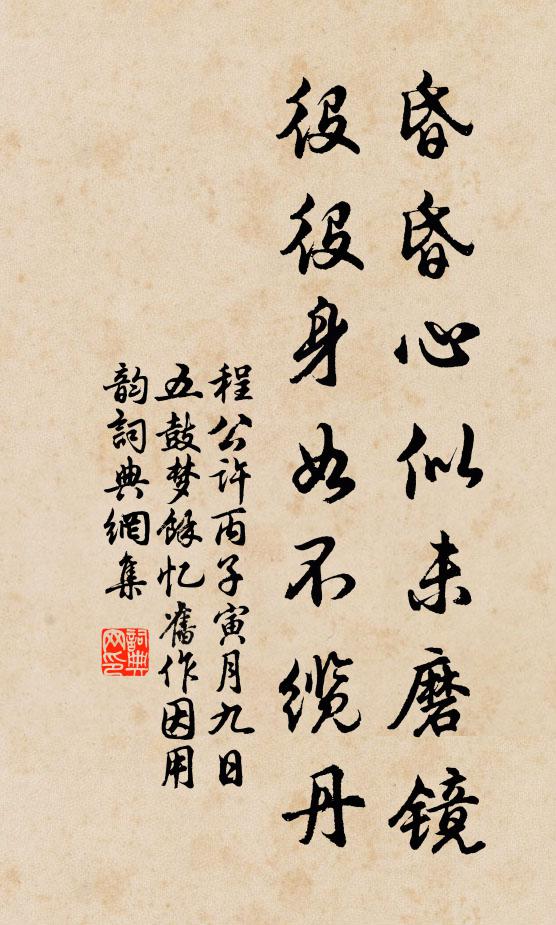 昏昏心似未磨镜
役役身如不缆丹
程公许丙子寅月九日
五鼓梦馀忆舊作因用
韵詞典網集
詞典網印